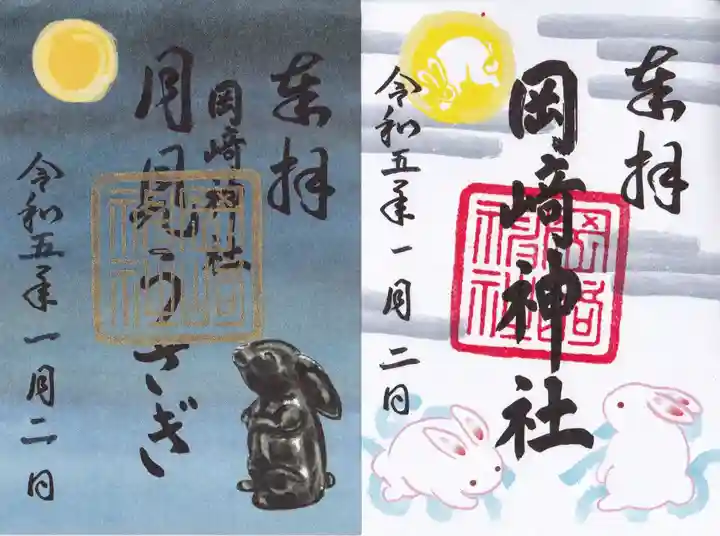 奉拝
岡崎神社
月見うさぎ
令和五年一月二日
奉拝
岡﨑神社
岡崎神社
令和五年一月二日